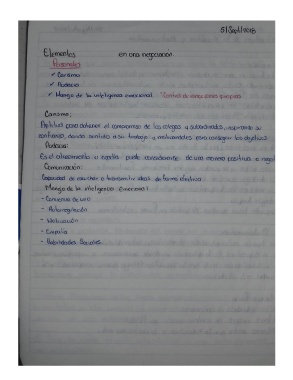 5/Sept/2018
Elementos en una negociación
Personales
✓ Carisma
✓ Audacia
✓ Manejo de la inteligencia emocional
Carisma:
Aptitud para obtener el compromiso de los colegas y subordinados, inspirarle su
confianza, dando sentido a su trabajo y motivandolos para conseguir los objetivos
Audacia:
Es el atrevimiento o osadía puede considerarse de una manera positiva o negat
Comunicación:
Capacidad de escuchar o transmitir ideas de forma efectiva.
Manejo de la inteligencia Emocional
- Conciencia de uno
- Autorregulación
- Motivación
- Empatía
- Habilidades Sociales